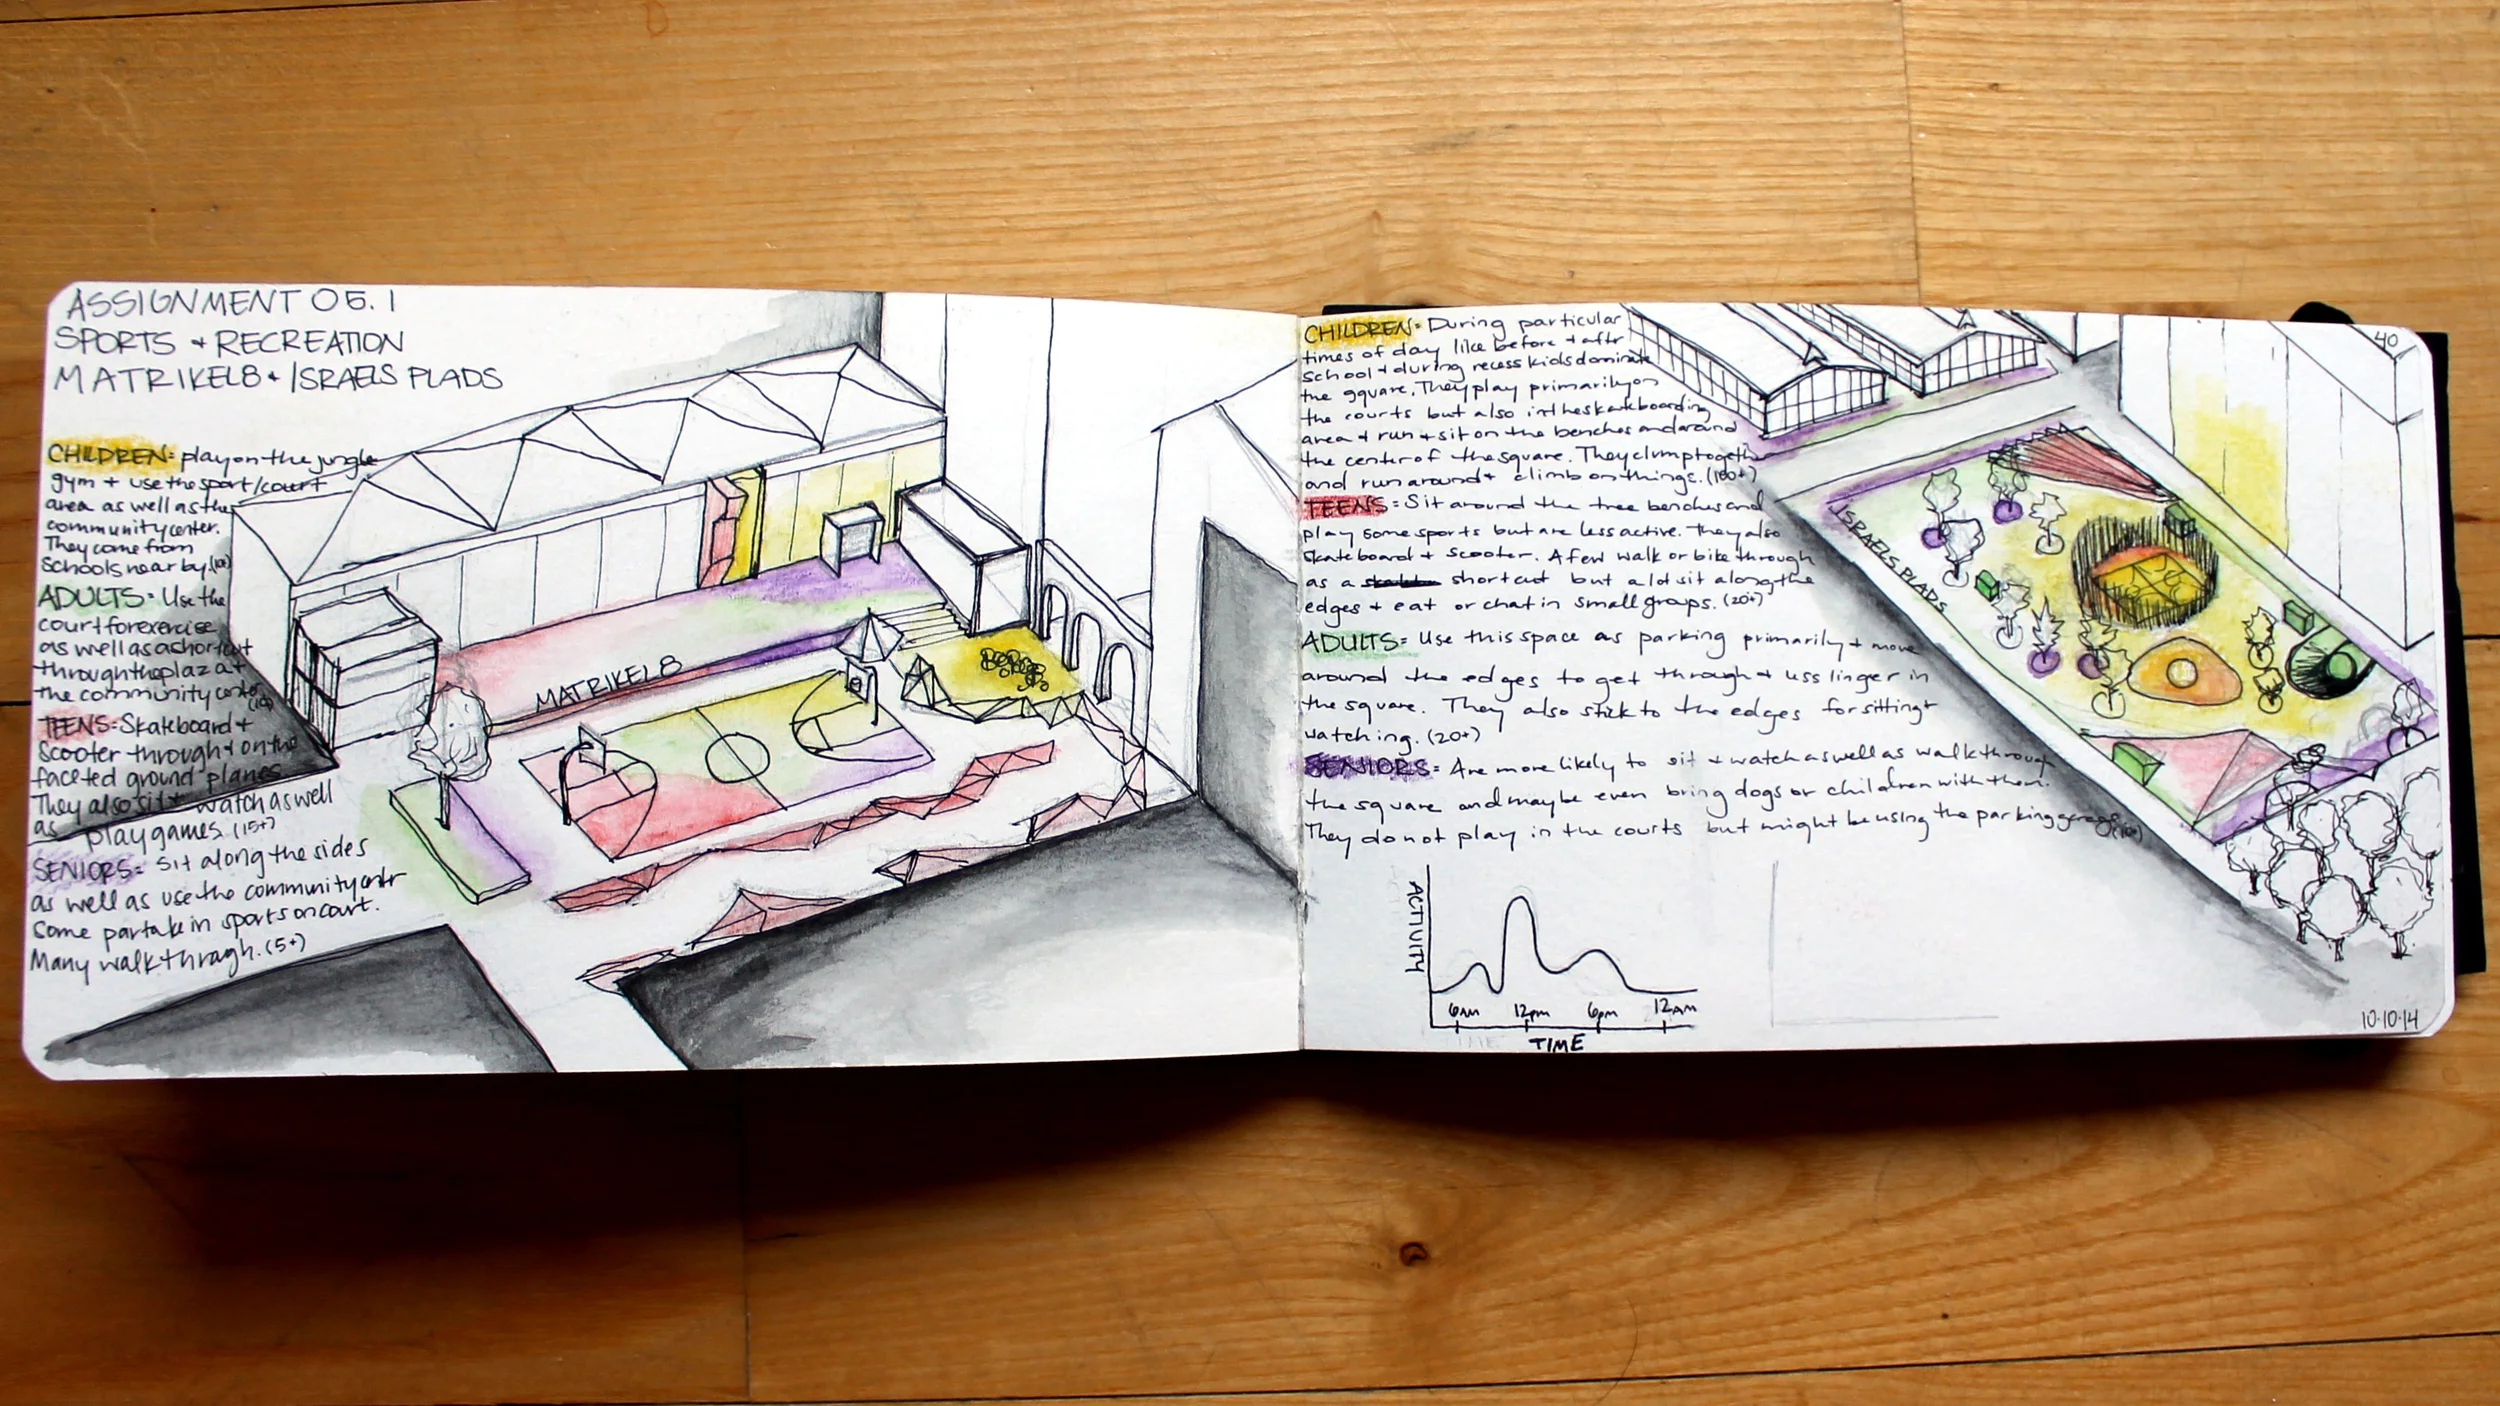 ASSIGNMENT 05.1
SPORTS + RECREATION
MATRIKEL8 + ISRAELS PLADS
CHILDREN= play on the jungle
gym + use the sport/court
area as well as the
community center.
They come from
schools near by.
ADULTS= Use the
court for exercise
as well as a shortcut
through the plaza +
the community center
(10)
TEENS= Skateboard +
scooter through + on the
faceted ground planes.
They also sit + watch as well
as play games. (15+)
SENIORS= Sit along the sides
as well as use the community cntr
some partake in sports on court.
Many walk through. (5+)
MATRIKEL8
CHILDREN= During particular
times of day like before + aftr
school + during recess kids dominate
the square. They play primarily on
the courts but also in the skateboarding
area + run + sit on the benches and around
the center of the square. They clump together
and run around + climb on things. (100+)
TEENS= Sit around the tree benches and
play some sports but are less active. They also
skateboard + scooter. A few walk or bike through
as a shortcut but a lot sit along the
edges + eat or chat in small groups. (20+)
ADULTS= Use this space as parking primarily + move
around the edges to get through + less linger in
the square. They also stick to the edges for sitting +
watching. (20+)
SENIORS= Are more likely to sit + watch as well as walk through
the square and maybe even bring dogs or children with them.
They do not play in the courts but might be using the parking garage
ISRAELS PLADS
40
ACTIVITY
6AM 12pm 6pm 12AM
TIME
10.10.14